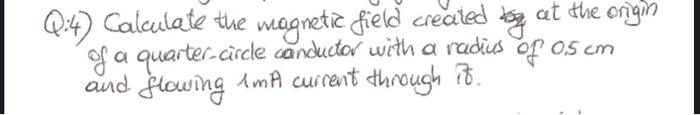 Q:4) Calculate the magnetic field created at the origin
of a quarter-circle conductor with a radius of 0,5 cm
and flowing 1mA current through it.